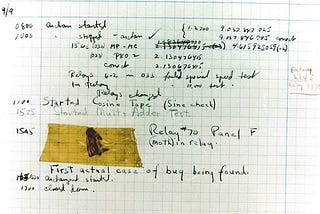 9/9
0800 antan started
1000 stopped - antan ✓ { 1.2700 9.037 847 025
9.037 846 995 correct
13"uc (032) MP-MC 2.130476415 4.615925059(-2)
(033) PRO 2 2.130476415
correct 2.130676415
Relays 6-2 in 033 failed special speed test
in Relay 10.000 test.
Relays changed
1100 Started Cosine Tape (Sine check)
1525 Started Mult+Adder Test.
1545 Relay #70 Panel F
(moth) in relay.
First actual case of bug being found.
1630 antangent started.
1700 closed down.
Relay